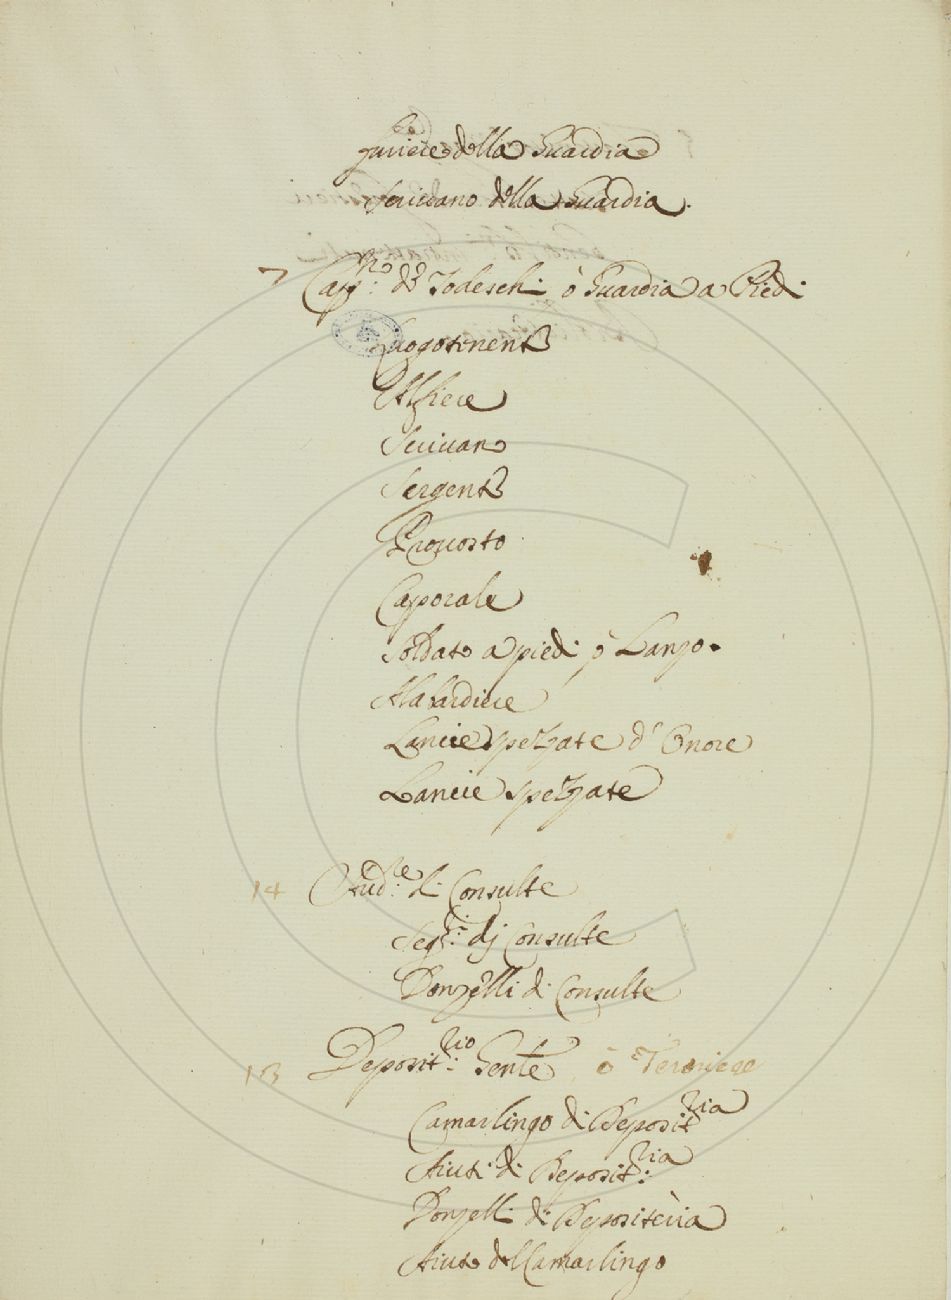 Furiere della Guardia
Scrivano della Guardia.
7 Capp.no de Todeschi ò Guardia a Piedi
Luogotenente
Alfiere
Scrivano
Sergente
Provosto
Caporale
Soldato a piedi ò Lanzo.
Alabardiere
Lancie spezzate d'Onore
Lancie spezzate
14 Aud.re di Consulte
Seg. dj Consulte
Donzelli di Consulte
13 Deposit.rio Gen.te ò
Camarlingo di Deposit.ria
Aiuti di Deposit.ria
Donzelli di Depositeria
Aiuto del Camarlingo